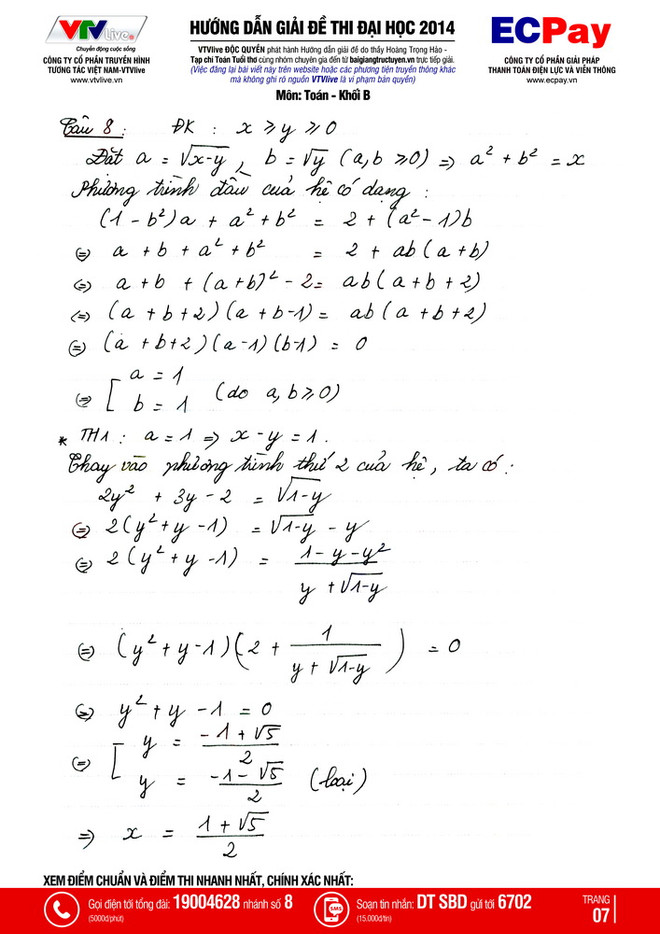 VTVLive
Chuyển động cuộc sống
CÔNG TY CỔ PHẦN TRUYỀN HÌNH
TƯƠNG TÁC VIỆT NAM-VTVlive
www.vtvlive.vn
HƯỚNG DẪN GIẢI ĐỀ THI ĐẠI HỌC 2014
VTVlive ĐỘC QUYỀN phát hành Hướng dẫn giải đề do thầy Hoàng Trọng Hảo -
Tạp chí Toán Tuổi thơ cùng nhóm chuyên gia đến từ baigiangtructuyen.vn trực tiếp giải.
(Việc đăng lại bài viết này trên website hoặc các phương tiện truyền thông khác
mà không ghi rõ nguồn VTVlive là vi phạm bản quyền)
Môn: Toán - Khối B
ECPay
CÔNG TY CỔ PHẦN GIẢI PHÁP
THANH TOÁN ĐIỆN LỰC VÀ VIỄN THÔNG
www.ecpay.vn
Câu 8 : ĐK : x ≥ y ≥ 0
Đặt a = √(x-y) , b = √y (a,b ≥ 0) => a² + b² = x
Phương trình đầu của hệ có dạng :
(1 - b²)a + a² + b² = 2 + (a² - 1)b
<=> a + b + a² + b² = 2 + ab(a+b)
<=> a + b + (a+b)² - 2 = ab(a+b+2)
<=> (a+b+2)(a+b-1) = ab(a+b+2)
<=> (a+b+2)(a-1)(b-1) = 0
<=> [ a = 1
b = 1 (do a,b ≥ 0)
* TH1 : a = 1 => x - y = 1.
Thay vào phương trình thứ 2 của hệ, ta có :
2y² + 3y - 2 = √(1-y)
<=> 2(y² + y - 1) = √(1-y) - y
<=> 2(y² + y - 1) = (1 - y - y²)/(y + √(1-y))
<=> (y² + y - 1)(2 + 1/(y + √(1-y))) = 0
<=> y² + y - 1 = 0
<=> [ y = (-1 + √5)/2
y = (-1 - √5)/2 (loại)
=> x = (1 + √5)/2
XEM ĐIỂM CHUẨN VÀ ĐIỂM THI NHANH NHẤT, CHÍNH XÁC NHẤT:
Gọi điện tới tổng đài: 19004628 nhánh số 8
(5000đ/phút)
SMS
Soạn tin nhắn: DT SBD gửi tới 6702
(15.000đ/tn)
TRANG
07